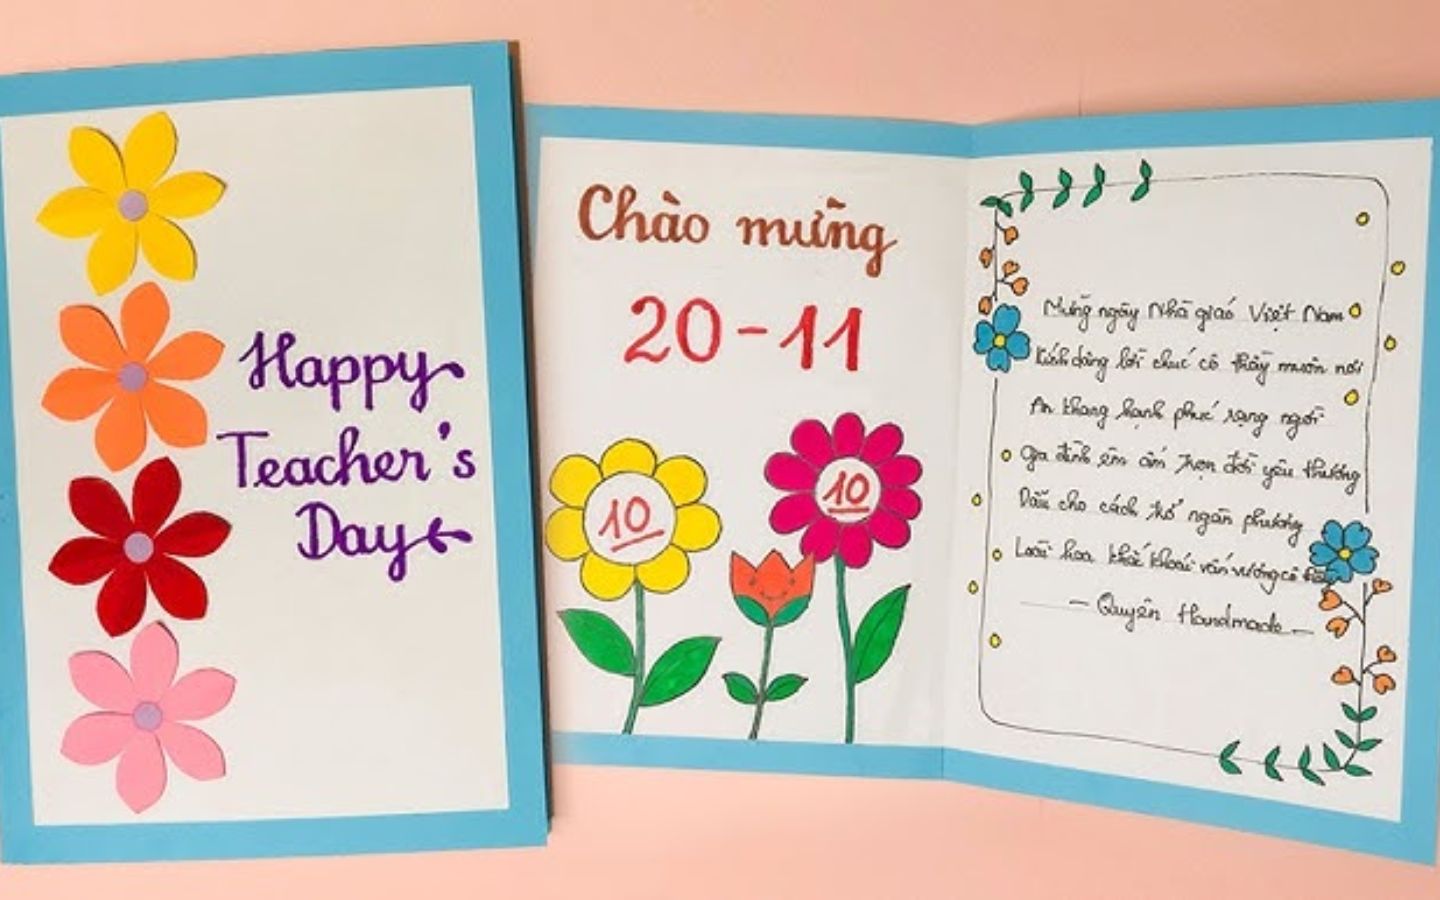 Happy
Teacher's
Day
Chào mừng
20-11
10
10
Mừng ngày Nhà giáo Việt Nam
Kính dâng lời chúc cô thầy muôn nơi
An khang hạnh phúc rạng ngời
Gia đình êm ấm trọn đời yêu thương
Dẫu cho cách trở ngàn phương
Loài hoa khắc khoải vấn vương cô thầy
- Quyên Handmade -